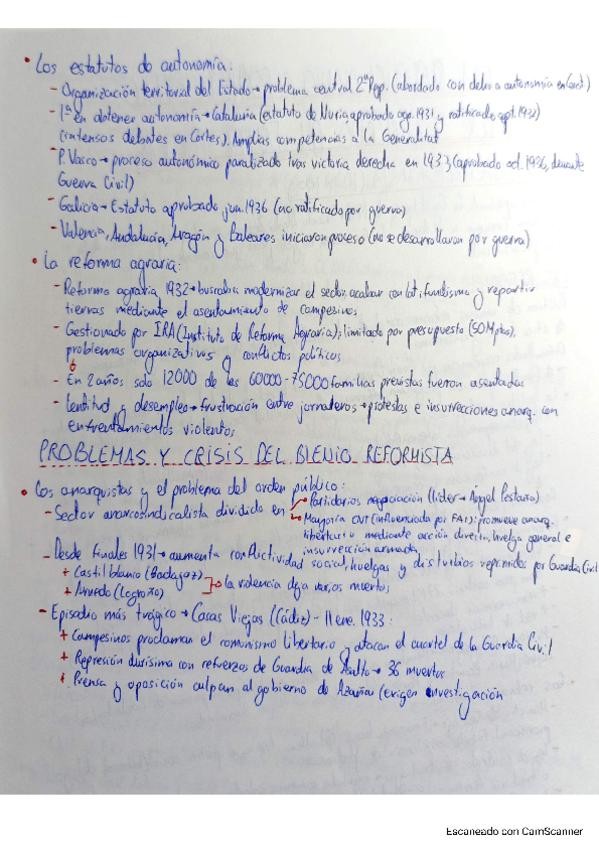 • Los estatutos de autonomía:
- Organización territorial del Estado → problema central 2ª Rep. (abordado con dcho a autonomía en Const.)
- 1ª en obtener autonomía → Cataluña (estatuto de Nuria, aprobado ago. 1931 y ratificado sept. 1932)
(intensos debates en Cortes). Amplias competencias a la Generalitat
- P. Vasco → proceso autonómico paralizado tras victoria derecha en 1933 (aprobado oct. 1936, durante
Guerra Civil)
- Galicia → Estatuto aprobado jun. 1936 (no ratificado por guerra)
- Valencia, Andalucía, Aragón y Baleares iniciaron proceso (no se desarrollaron por guerra)
• La reforma agraria:
- Reforma agraria 1932 → buscaba modernizar el sector, acabar con latifundismo y repartir
tierras mediante el asentamiento de campesinos
- Gestionado por IRA (Instituto de Reforma Agraria); limitado por presupuesto (50M ptas),
problemas organizativos y conflictos políticos
- En 2 años solo 12000 de las 60000-75000 familias previstas fueron asentadas
- Lentitud y desempleo → frustración entre jornaleros → protestas e insurrecciones anarq. con
enfrentamientos violentos
PROBLEMAS Y CRISIS DEL BIENIO REFORMISTA
• Los anarquistas y el problema del orden público:
- Sector anarcosindicalista dividido en
Partidarios negociación (líder → Ángel Pestaña)
Mayoría CNT (influenciada por FAI): promueve anarq.
libertario mediante acción directa, huelga general e
insurrección armada
- Desde finales 1931 → aumenta conflictividad social, huelgas y disturbios reprimidos por Guardia Civil
+ Castilblanco (Badajoz)
+ Arnedo (Logroño)
→ la violencia deja varios muertos
- Episodio más trágico → Casas Viejas (Cádiz) - 11 ene. 1933:
+ Campesinos proclaman el comunismo libertario y atacan el cuartel de la Guardia Civil
+ Represión durísima con refuerzos de Guardia de Asalto → 36 muertos
+ Prensa y oposición culpan al gobierno de Azaña (exigen investigación
Escaneado con CamScanner